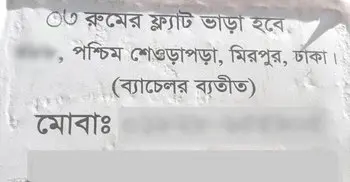 ০৩ রুমের ফ্ল্যাট ভাড়া হবে
, পশ্চিম শেওড়াপাড়া, মিরপুর, ঢাকা।
(ব্যাচেলর ব্যতীত)
মোবাঃ